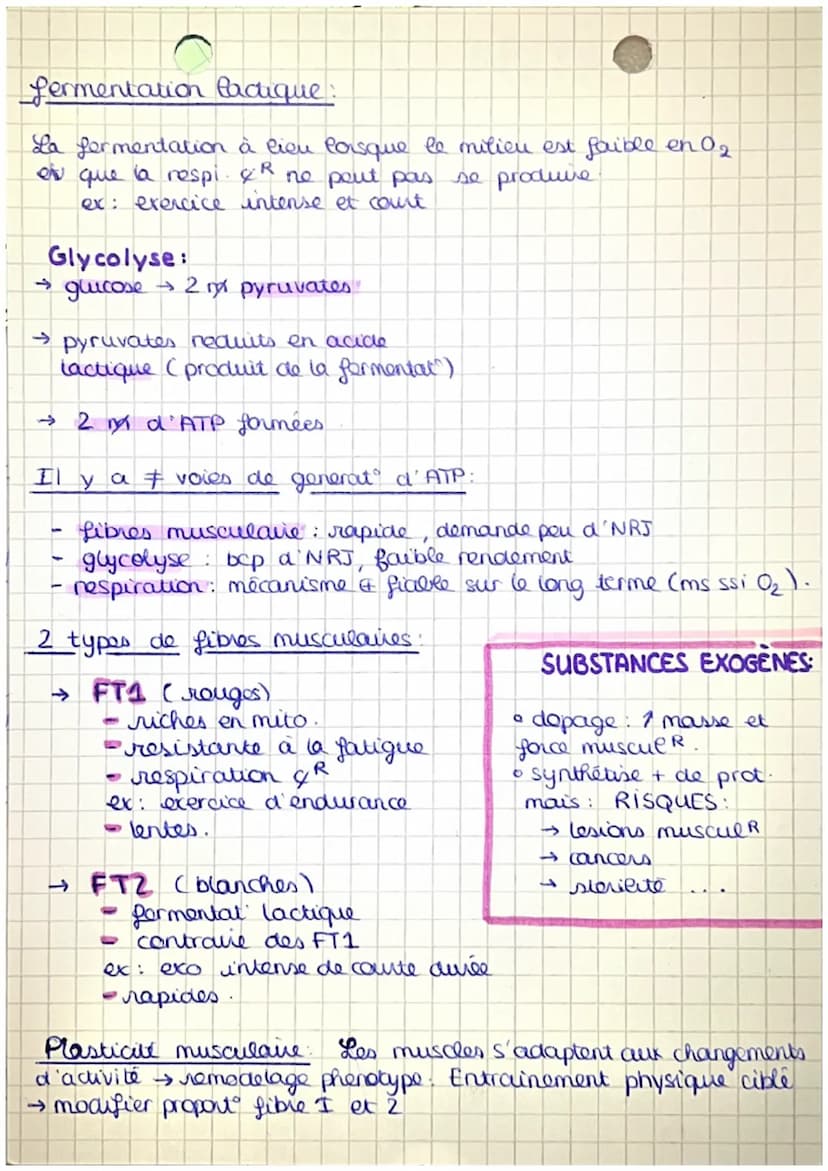 fermentation lactique :
La fermentation à lieu lorsque le milieu est faible en O₂
et que la respi. ȼR ne peut pas se produire
ex : exercice intense et court
Glycolyse :
→ glucose → 2 pyruvates
→ pyruvates reduits en acide
lactique (produit de la fermentat°)
→ 2 d'ATP formées
Il y a ≠ voies de generat° d'ATP :
- fibres musculaire : rapide, demande peu d'NRJ
- glycolyse : bcp d'NRJ, faible rendement
- respiration : mécanisme ⊕ fiable sur le long terme (ms ssi O₂).
2 types de fibres musculaires :
→ FT1 (rouges)
- riches en mito.
- resistante à la fatigue
- respiration ȼR
ex : exercice d'endurance
- lentes.
→ FT2 (blanches)
- fermentat° lactique
- contraire des FT1
ex : exo intense de courte durée
- rapides.
SUBSTANCES EXOGÈNES:
• dopage : ↑ masse et
force musculR.
• synthétise + de prot.
mais : RISQUES :
→ lesions musculR
→ cancers
→ sterilité ...
Plasticité musculaire : Les muscles s'adaptent aux changements
d'activité → remodelage phenotype. Entrainement physique ciblé
→ modifier proport° fibre I et 2